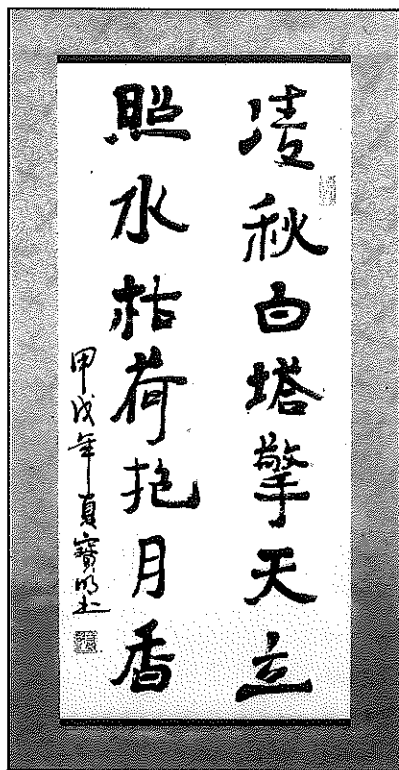 凌秋白塔擎天立
照水枯荷抱月香
甲戌年夏寶明书